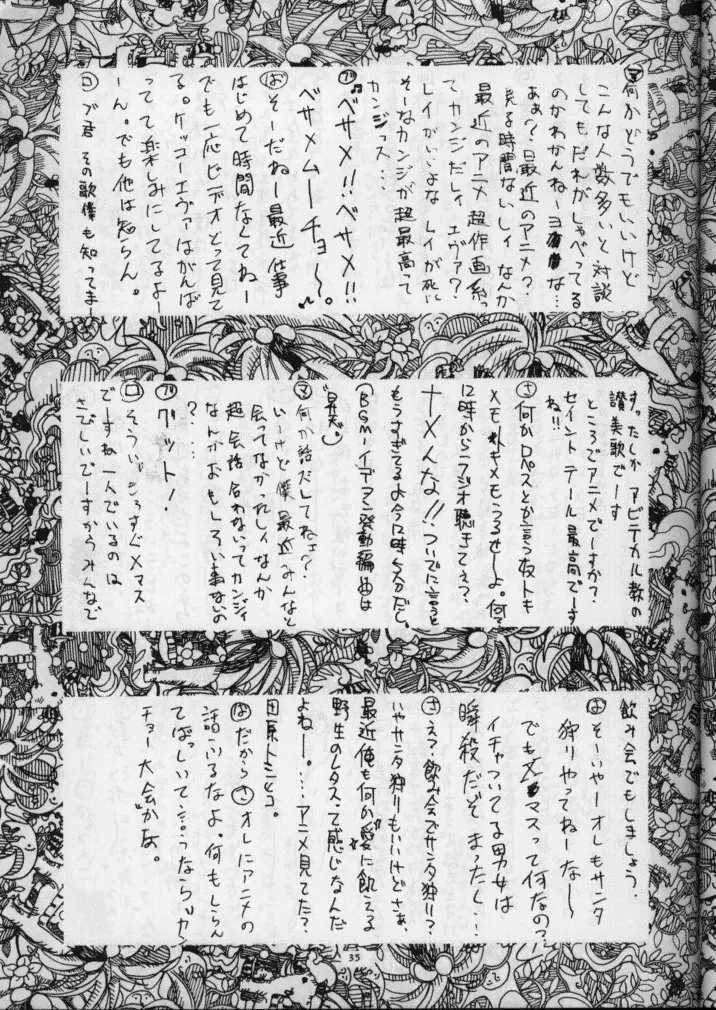 マ何かどうでもいいけど
こんな人数多いと対談
してもだれがしゃべってる
のかわかんねーヨ な…
あぁ?最近のアニメ?
見る時間ないしィなんか
最近のアニメ超作画系っ
てカンジだしィエヴァ?
レイがいいよなレイが死に
そーなカンジが超最高って
カンジっス…
ブ♫ベサメ!!ベサメ!!
ベサメムーチョ〜。
ばそーだねー最近仕事
はじめて時間なくてねー
でも一応ビデオとって見て
る。ケッコーエヴァはがんば
ってて楽しみにしてるよー
ーん。でも他は知らん。
ロブ君その歌僕も知ってまー
すったしかアビテカル教の
讃美歌でーす
ところでアニメでーすか?
セイントテール最高でーす
ね!!
さ何かロペスとか言う夜トも
メモもうるせーよ。何?
12時からラジオ聴きてぇ?
ナメんな!!ついでに言うと
もうすぎてるよ今12時5分だし。
(BGM・イデアン発動編曲は
「昇天」)
マ何か話だしてねェ?
いーけど僕最近みんなと
会ってなかったしィなんか
超会話合わないってカンジィ
なんかおもしろい事ないの
?…
ブグット!
ロそういえもうすぐXマス
でーすね一人でいるのは
さびしいでーすからみんなで
飲み会でもしましょう.
ばそーいやーオレもサンタ
狩りやってねーなー
でもXマスって何なの?
イチャついてる男女は
瞬殺だぞまったく…
さえ?飲み会でサンタ狩り?
いやサンタ狩りもいいけどさぁ、
最近俺も何か愛に飢える
野生のレタスって感じなんだ
よねー。…アニメ見てた?
田原トシヒコ。
ばだからさオレにアニメの
話ふるなよ。何もしらん
てばっしいて…うなら"ガ
チョー大会"かな。
35